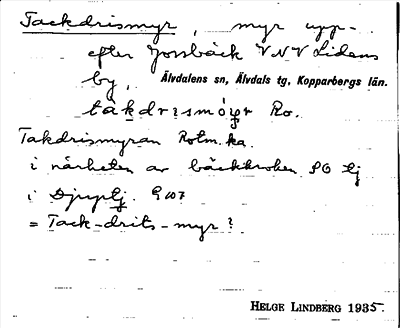 Tackdrismyr, myr upp-
efter Jossbäck V N V Lidens
by, Älvdalens sn, Älvdals tg, Kopparbergs län.
Ro.
Takdrismyran Rotm. ka.
i närheten av bäckkroken SO lj
i Djuplj. G 107
= Tack-drits-myr?
HELGE LINDBERG 1935.